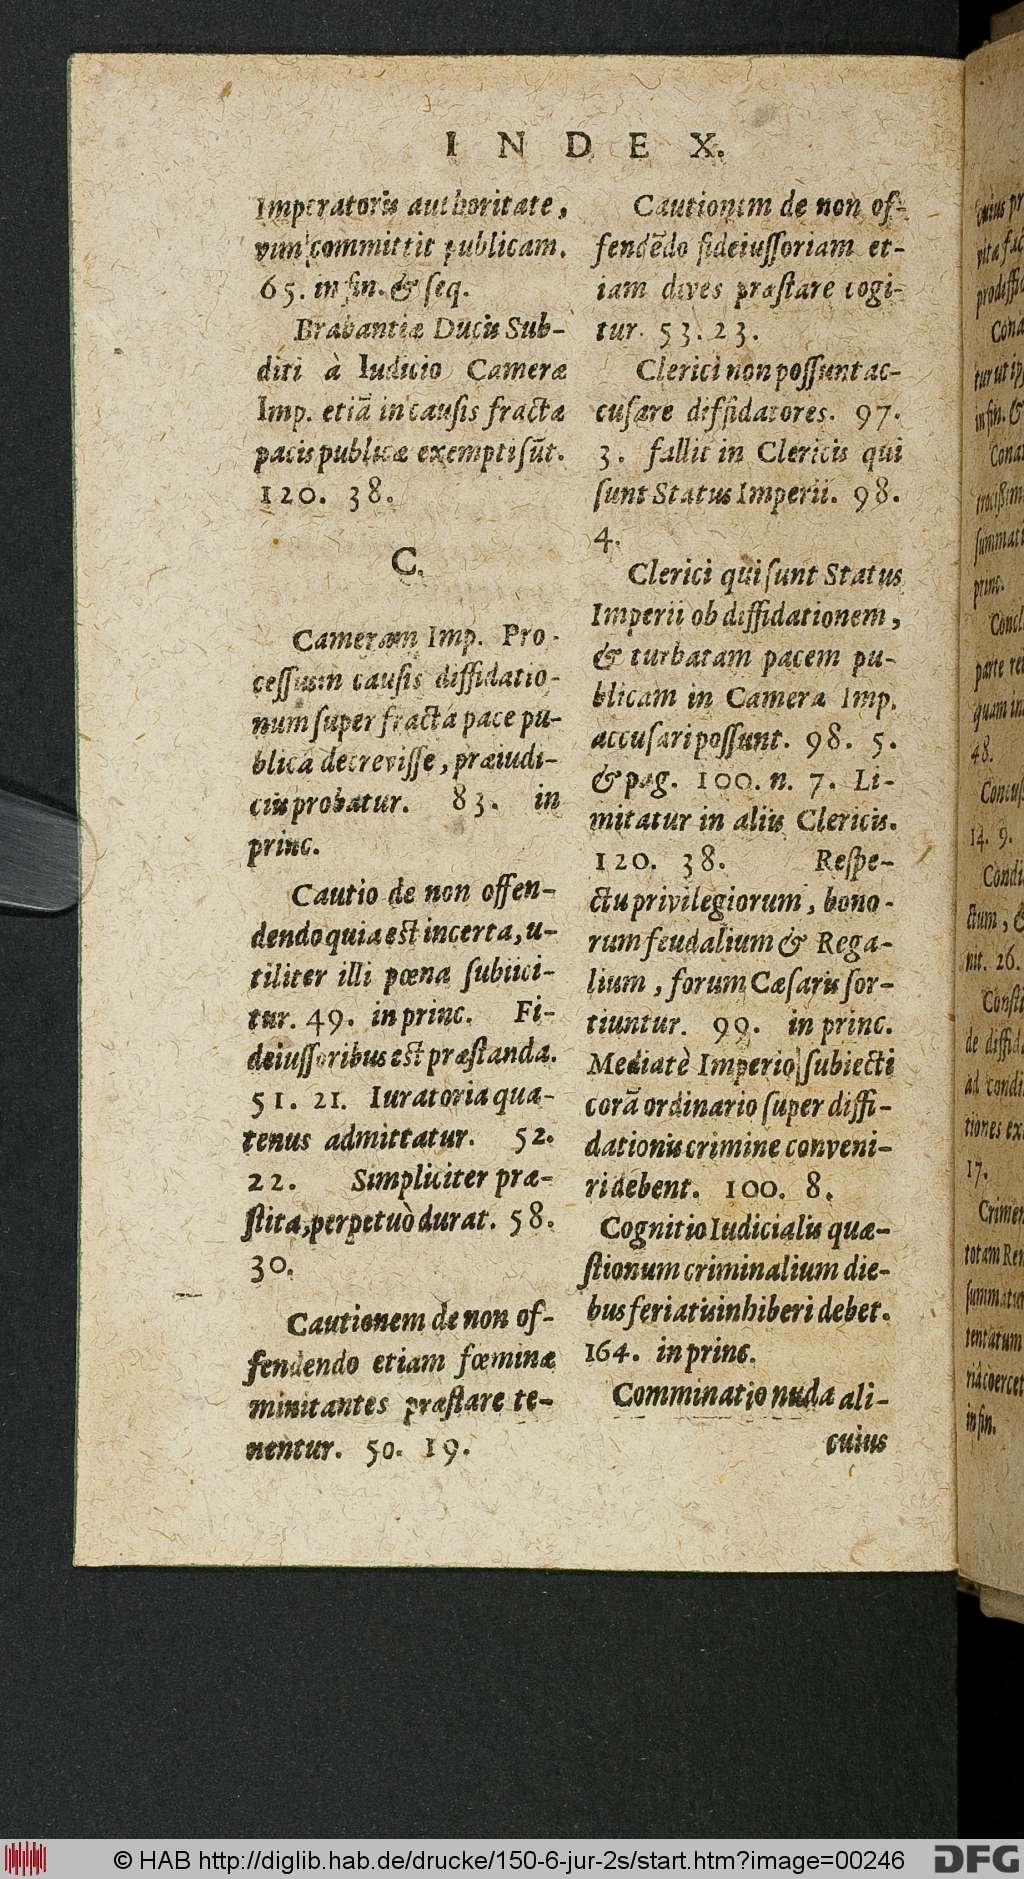 INDEX.
Imperatoris authoritate,
vim committit publicam.
65. in fin. & seq.
Brabantiæ Ducis Sub-
diti à Iudicio Cameræ
Imp. etiā in causis fractæ
pacis publicæ exempti sūt.
120. 38.
C.
Cameram Imp. Pro-
cessum in causis diffidatio-
num super fracta pace pu-
blica decrevisse, præiudi-
ciis probatur. 83. in
princ.
Cautio de non offen-
dendo quia est incerta, u-
tiliter illi pœna subiici-
tur. 49. in princ. Fi-
deiussoribus est præstanda.
51. 21. Iuratoria qua-
tenus admittatur. 52.
22. Simpliciter præ-
stita, perpetuò durat. 58.
30.
Cautionem de non of-
fendendo etiam fœminæ
minitantes præstare te-
nentur. 50. 19.
Cautionem de non of-
fendēdo fideiussoriam et-
iam dives præstare cogi-
tur. 53. 23.
Clerici non possunt ac-
cusare diffidatores. 97.
3. fallit in Clericis qui
sunt Status Imperii. 98.
4.
Clerici qui sunt Status
Imperii ob diffidationem,
& turbatam pacem pu-
blicam in Camera Imp.
accusari possunt. 98. 5.
& pag. 100. n. 7. Li-
mitatur in aliis Clericis.
120. 38. Respe-
ctu privilegiorum, bono-
rum feudalium & Rega-
lium, forum Cæsaris sor-
tiuntur. 99. in princ.
Mediatè Imperio subiecti
corā ordinario super diffi-
dationis crimine conveni-
ri debent. 100. 8.
Cognitio Iudicialis quæ-
stionum criminalium die-
bus feriatis inhiberi debet.
164. in princ.
Comminatio nuda ali-
cuius
48.
14. 9.
nit. 26.
17.
in fin.
© HAB http://diglib.hab.de/drucke/150-6-jur-2s/start.htm?image=00246
DFG